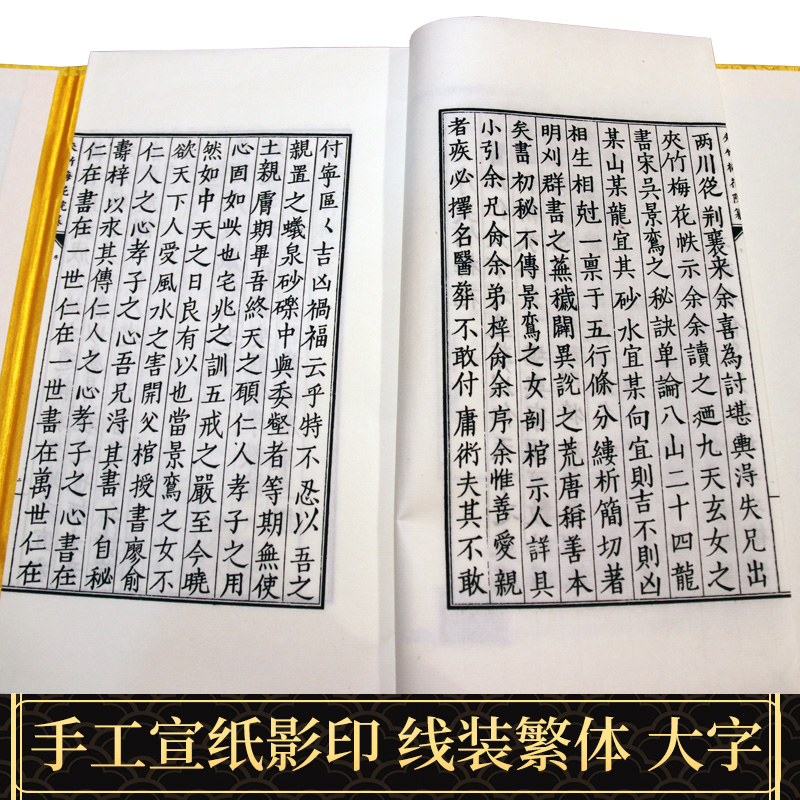 两川襄来余喜為討堪輿淂失兄出
夾竹梅花帙示余余讀之廼九天玄女之
書宋吳景鸞之秘訣单論八山二十四龍
某山某龍宜其砂水宜某向宜則吉不則凶
相生相尅一禀于五行條分縷析簡切著
明刈群書之蕪穢闢異說之荒唐稱善本
矣書初秘不傳景鸞之女剖棺示人詳具
小引余兄余弟梓余序余惟善愛親
者疾必擇名醫葬不敢付庸術夫其不敢
付寧區〻吉凶禍福云乎特不忍以吾之
親置之蟻泉砂礫中與委壑者等期無使
土親膚期畢吾終天之碩仁人孝子之用
心固如此也宅兆之訓五戒之嚴至今曉
然如中天之日良有以也當景鸞之女不
欲天下人受風水之害開父棺授書廖俞
仁人之心孝子之心吾兄淂其書下自秘
壽梓以永其傳仁人之心孝子之心書在
仁在書在一世仁在一世書在萬世仁在
手工宣纸影印 线装繁体 大字